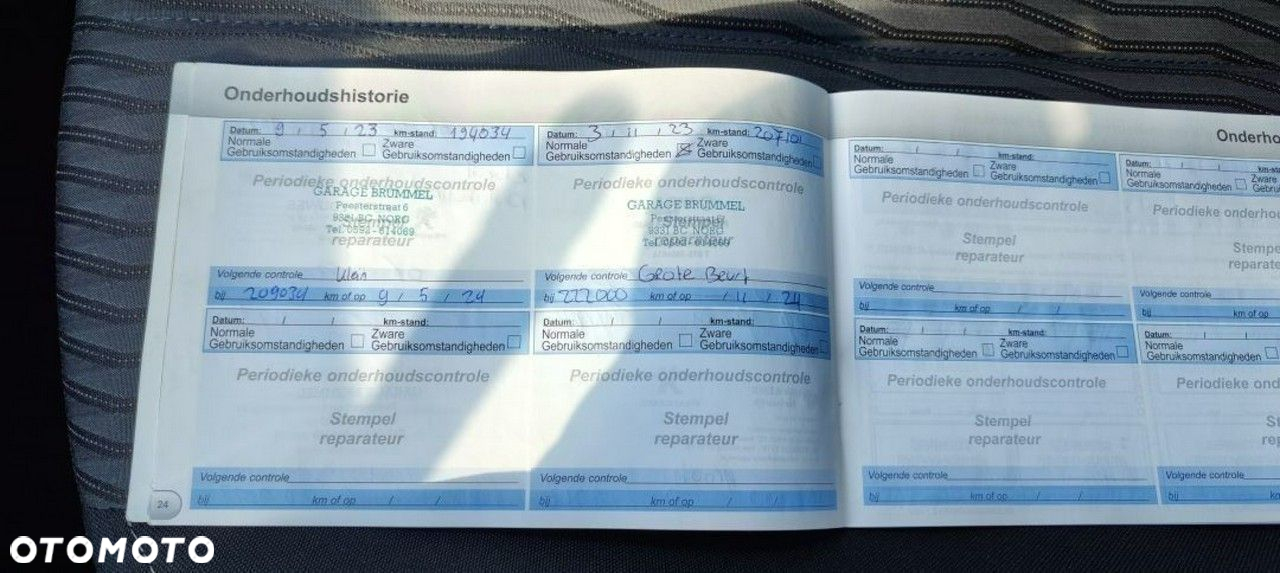 Onderhoudshistorie
Datum: 9 / 5 / 23 km-stand: 194034
Normale Zware
Gebruiksomstandigheden Gebruiksomstandigheden
Periodieke onderhoudscontrole
GARAGE BRUMMEL
Peesterstraat 6
9331 BC NORG
Tel. 0592 - 614069
Stempel
reparateur
Volgende controle Klein
bij 209034 km of op 9 / 5 / 24
Datum: 3 / 11 / 23 km-stand: 207101
Normale Zware
Gebruiksomstandigheden Gebruiksomstandigheden
Periodieke onderhoudscontrole
GARAGE BRUMMEL
Peesterstraat 6
9331 BC NORG
Stempel
reparateur
Volgende controle Grote Beurt
bij 222000 km of op / 11 / 24
Datum: / / km-stand:
Normale Zware
Gebruiksomstandigheden Gebruiksomstandigheden
Periodieke onderhoudscontrole
Stempel
reparateur
Volgende controle
bij km of op / /
Datum: / / km-stand:
Normale Zware
Gebruiksomstandigheden Gebruiksomstandigheden
Periodieke onderhoudscontrole
Stempel
reparateur
Volgende controle
bij km of op / /
24
Onderho
Datum: / / km-stand:
Normale Zware
Gebruiksomstandigheden Gebruiksomstandigheden
Periodieke onderhoudscontrole
Stempel
reparateur
Volgende controle
bij km of op / /
Datum: / / km-sta
Normale Zware
Gebruiksomstandigheden Gebru
Periodieke onderho
Stempe
reparate
Volgende controle
bij km of op
Datum: / / km-stand:
Normale Zware
Gebruiksomstandigheden Gebruiksomstandigheden
Periodieke onderhoudscontrole
Stempel
reparateur
Volgende controle
bij km of op / /
Datum: / /
Normale
Gebruiksomstandigheden
Periodieke ond
St
rep
Volgende controle
bij km
OTOMOTO